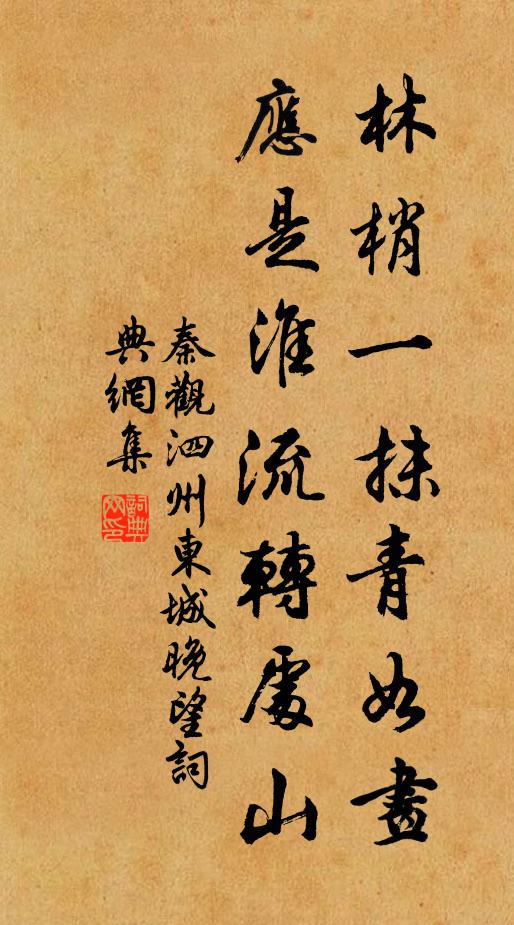 林梢一抹青如畫
應是淮流轉處山
秦觀泗州東城晚望詞
典網集
詞典
网印